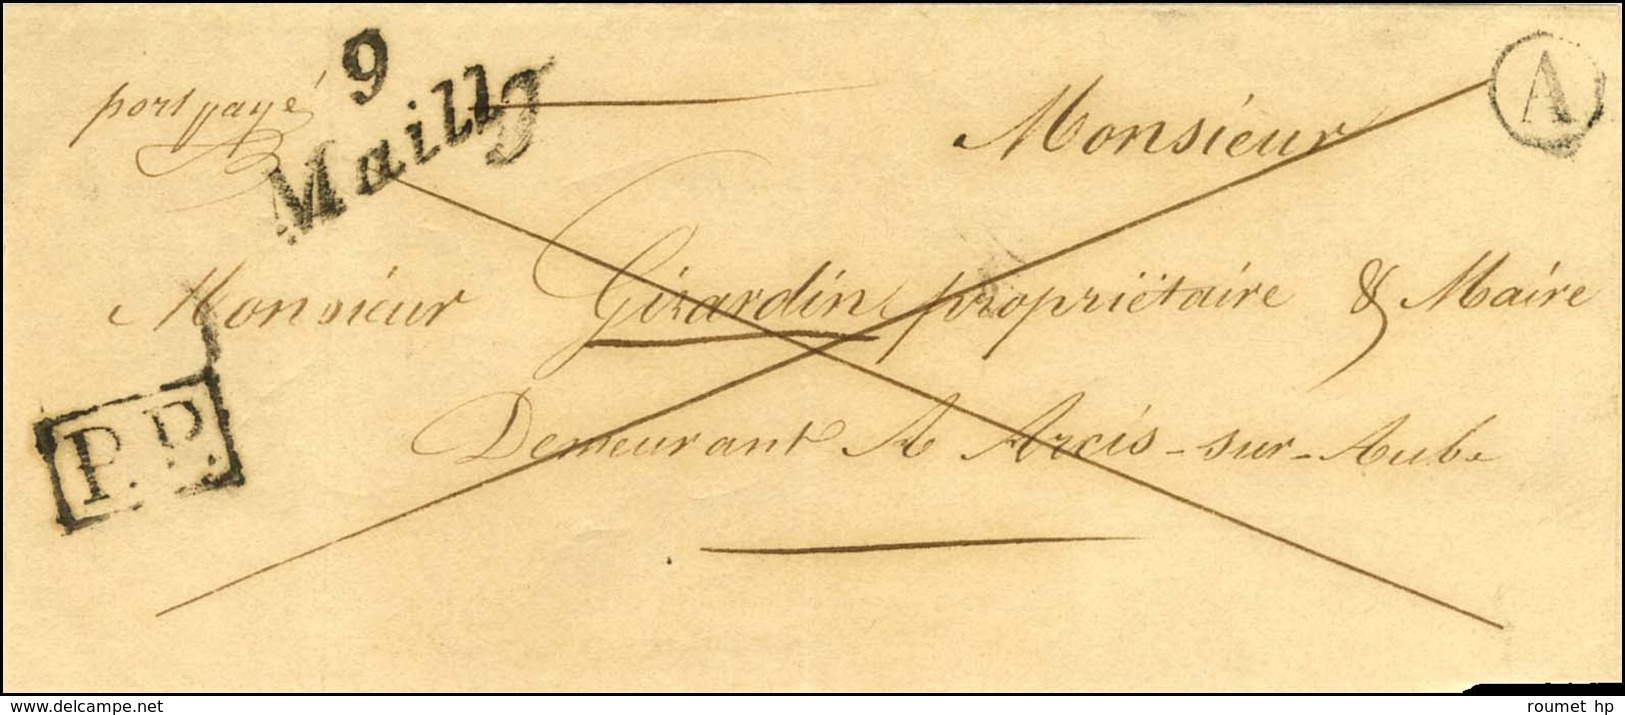 9
Mailly
A
port payé
Monsieur
Monsieur Girardin propriëtaire & Maire
P.P.
Demeurant A Arcis-sur-Aube
delcampe.net
roumet hp